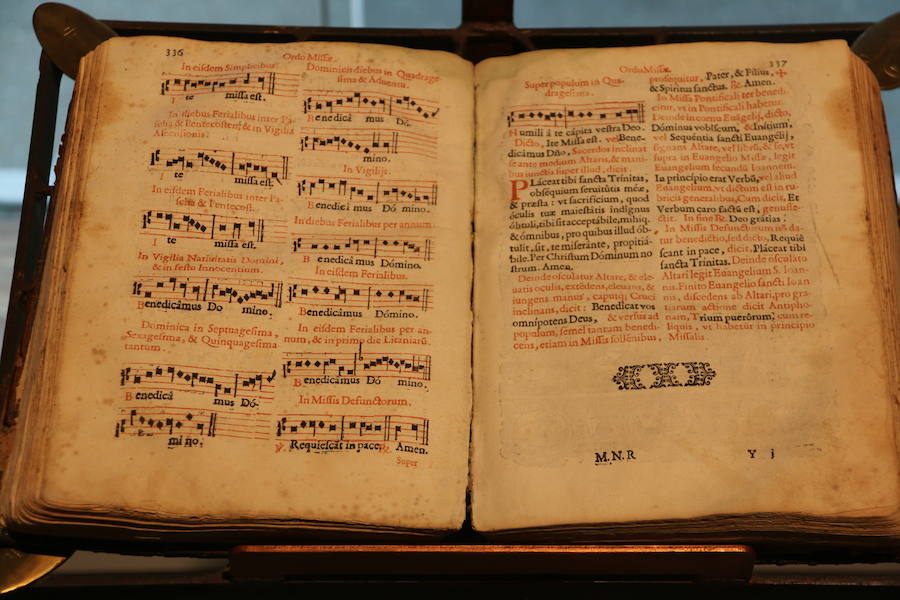 336
Ordo Missæ.
In eisdem Simplicibus
I te missa est.
In diebus Ferialibus inter Pa-
scha & Pentecosten, & in Vigilia
Ascensionis.
I te missa est.
In eisdem Ferialibus inter Pa-
scha & Pentecost.
I te missa est.
In Vigilia Nativitatis Domini,
& in festo Innocentium.
Benedicámus Do mino.
Dominica in Septuagesima,
Sexagesima, & Quinquagesima
tantum.
Benedicá mus Dó-
mi no.
Dominicis diebus in Quadrage-
sima & Adventu.
Benedicá mus Dó-
mino.
In Vigilijs.
Benedicámus Dómino.
In diebus Ferialibus per annum.
Benedicámus Dómino.
In eisdem Ferialibus.
Benedicámus Dómino.
In eisdem Ferialibus per an-
num, & in primo die Litaniarū.
Benedicámus Dó mino.
In Missis Defunctorum.
℣. Requiescat in pace. ℟. Amen.
Super
Ordo Missæ.
337
Super populum in Qua-
dragesima.
Humiliáte cápita vestra Deo.
Dicto, Ite Missa est. vel Bene-
dicámus Dño, Sacerdos inclinat
se ante medium Altaris, & mani-
bus iunctis super illud, dicit.
PLáceat tibi sancta Trinitas,
obséquium servitútis meæ,
& præsta: vt sacrificium, quod
óculis tuæ maiestátis indígnus
óbtuli, tibi sit acceptábile, mihiq;
& ómnibus, pro quibus illud ób-
tuli, sit, te miserante, propitiá-
bile. Per Christum Dóminum no
strum. Amen.
Deinde osculatur Altare, & ele-
uatis oculis, extédens, eleuans, &
iungens manus, caputq; Cruci
inclinans, dicit: Benedícat vos
omnípotens Deus, & versus ad
populum, semel tantum benedi-
cens, etiam in Missis sollénibus,
prosequitur, Pater, & Fílius, ✠
& Spíritus sanctus. ℟. Amen.
In Missa Pontificali ter benedi-
citur, vt in Pontificali habetur.
Deinde in cornu Euāgelij, dicto,
Dóminus vobíscum, & Inítium,
vel Sequéntia sancti Euangélij,
signans Altare, vel librū, & se, vt
supra in Euangelio Missæ, legit
Euangelium secundū Ioannem.
In princípio erat Verbū, vel aliud
Euangelium, vt dictum est in ru-
bricis generalibus. Cum dicit, Et
Verbum caro factū est, genufle-
ctit. In fine ℟. Deo grátias:
In Missis Defunctorum nō da-
tur benedictio, sed dicto, Requié
scant in pace, dicit, Pláceat tibi
sancta Trínitas. Deinde osculato
Altari legit Euangelium S. Ioan-
nis. Finito Euangelio sancti Ioan
nis, discedens ab Altari, pro gra-
tiarum actione dicit Antipho-
nam, Trium puerórum, cum re-
liquis, vt habetur in principio
Missalis.
M. N. R
Y j